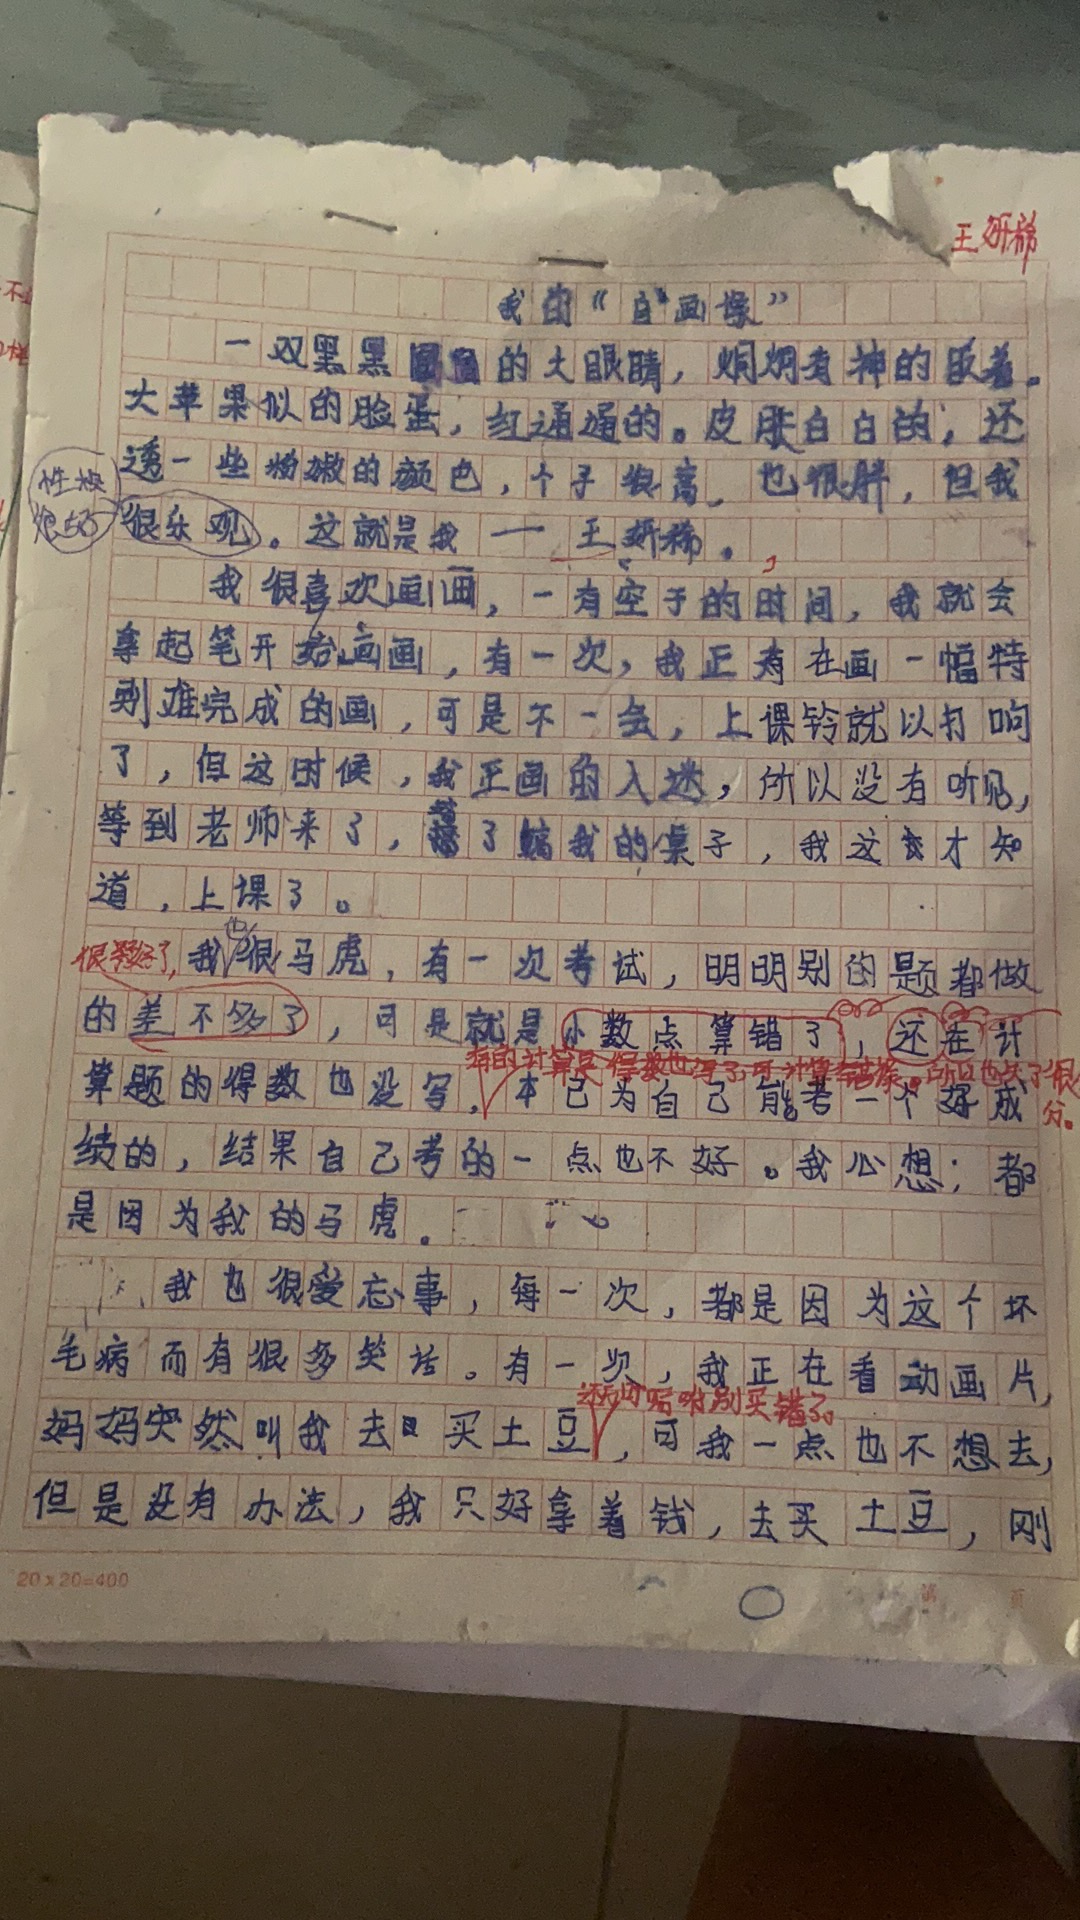 王妍稀
我的“自画像”
一双黑黑的大眼睛，炯炯有神的眨着。
大苹果似的脸蛋，红通通的。皮肤白白的，还
透一些粉嫩的颜色，个子很高，也很胖，但我
性格
很好
很乐观。这就是我——王妍稀。
我很喜欢画画，一有空于的时间，我就会
拿起笔开始画画，有一次，我正有在画一幅特
别难完成的画，可是不一会，上课铃就以打响
了，但这时候，我正画的入迷，所以没有听见，
等到老师来了，了我的桌子，我这才知
道，上课了。
也
我很马虎，有一次考试，明明别的题都做
的差不多了，可是就是小数点算错了，还在计
有的计算是得数也写了，可计算有错误，所以也失了很
分。
算题的得数也没写，本已为自己能考一个好成
绩的，结果自己考的一点也不好。我心想；都
是因为我的马虎。
我也很爱忘事，每一次，都是因为这个坏
毛病而有很多笑话。有一次，我正在看动画片，
别买错了。
妈妈突然叫我去买土豆，可我一点也不想去，
但是没有办法，我只好拿着钱，去买土豆，刚
20×20=400
第 页